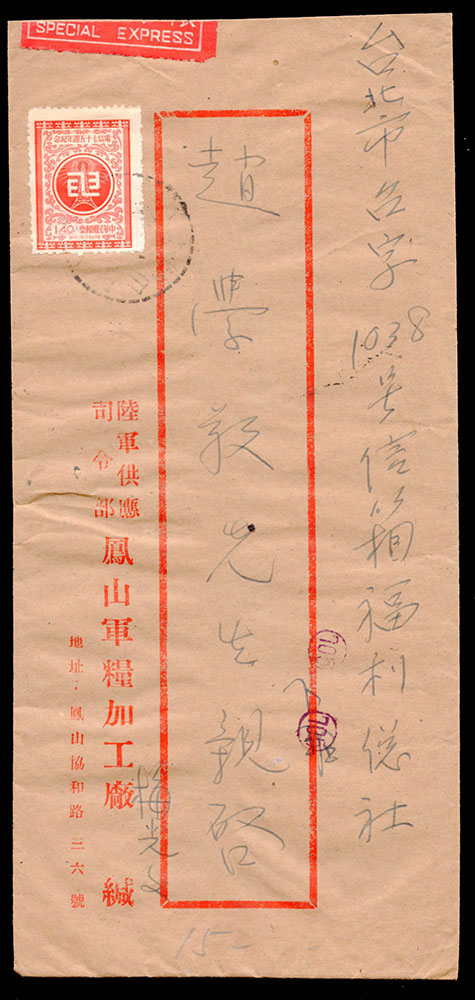 台北市台字1038号信箱福利总社
趙學毅先生親啓
陸軍供應司令部鳳山軍糧加工廠 緘
梅光文
地址・鳳山協和路三六號
SPECIAL EXPRESS
電信七十五週年紀念
1.40
中華民國郵票
山
702
702
15-